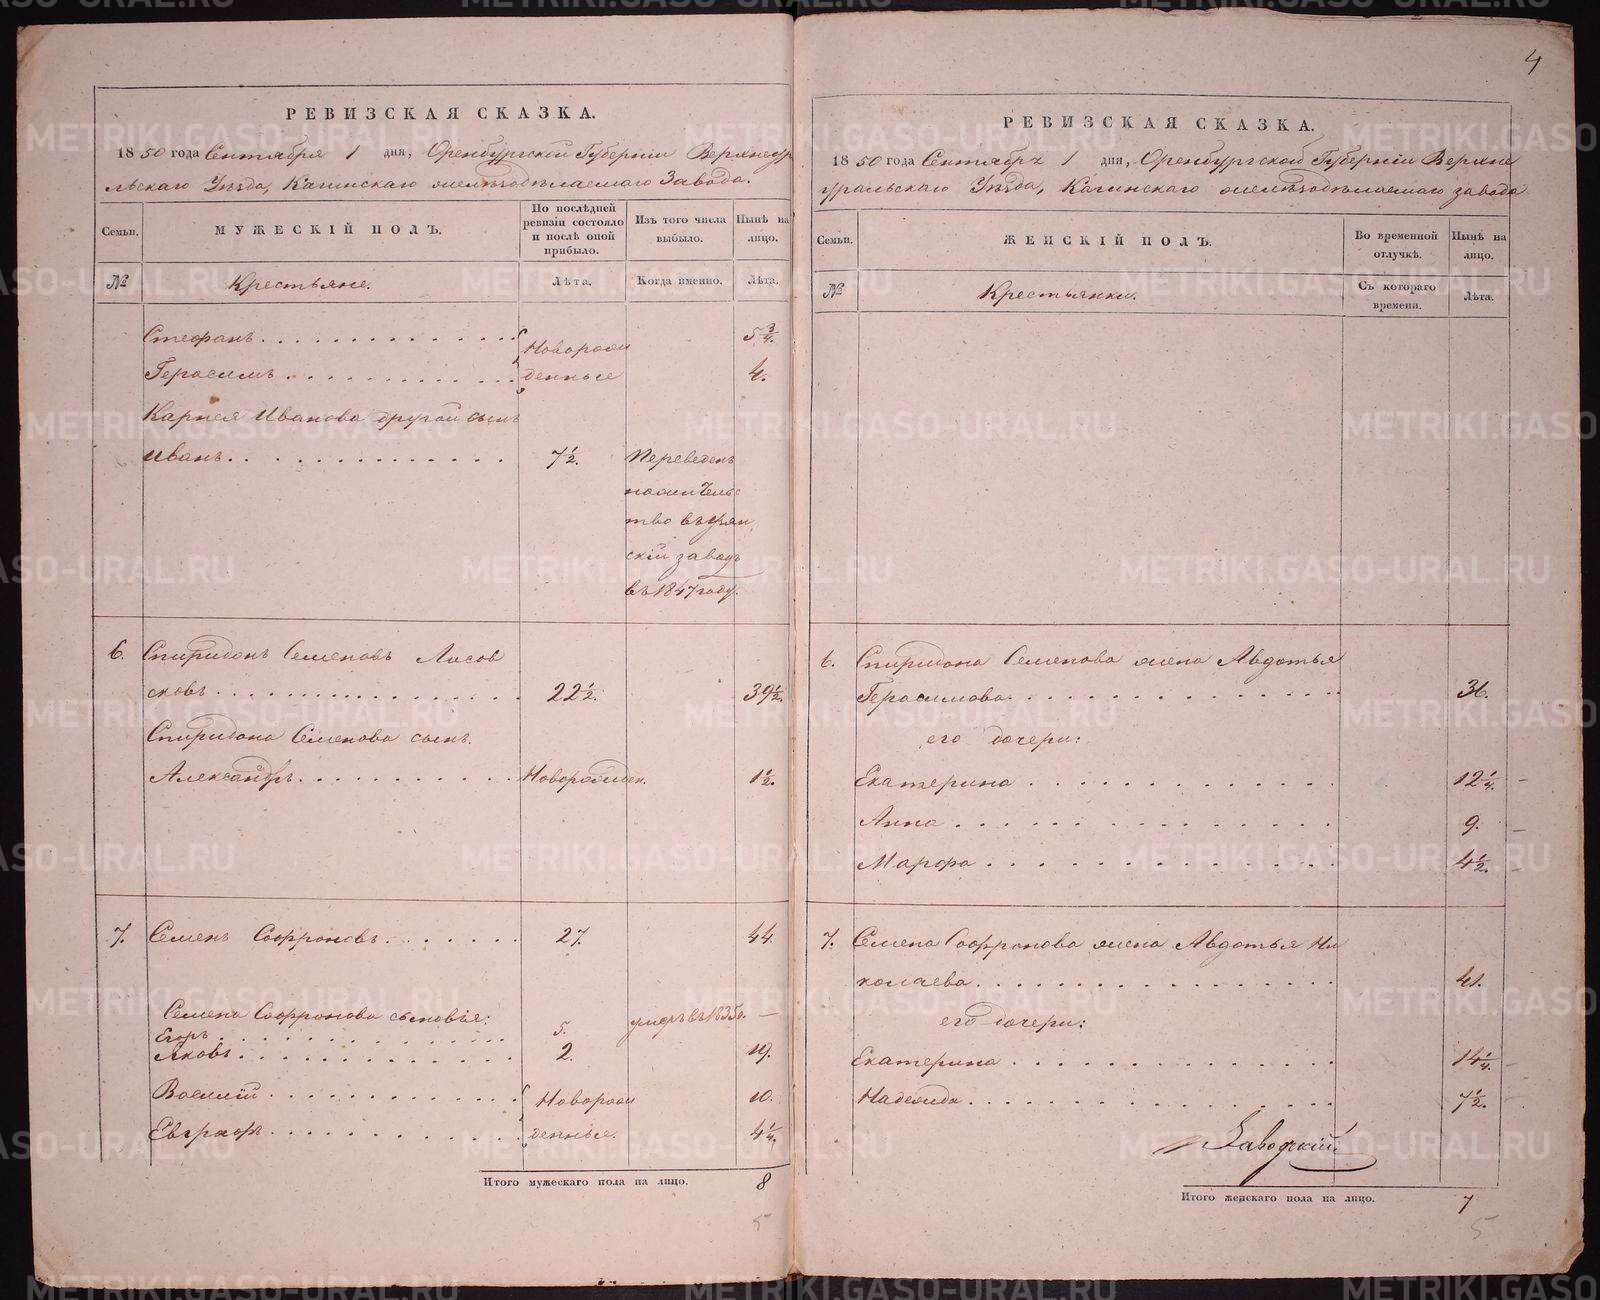 РЕВИЗСКАЯ СКАЗКА.
1850 года Сентября 1 дня, Оренбургской Губерніи Верхнеура
льскаго Уѣзда, Кагинскаго желѣзодѣлаемаго Завода.
Семьи.
МУЖЕСКІЙ ПОЛЪ.
По послѣдней
ревизіи состояло
и послѣ оной
прибыло.
Изъ того числа
выбыло.
Нынѣ на
лицо.
№
Крестьяне.
Лѣта.
Когда именно.
Лѣта.
Стефанъ
Новорож
5 3/4.
Герасимъ
денные
4.
Карпея Иванова другой сынъ
Иванъ
7 1/2.
Переведенъ
на жительс
тво въ Узян
скій заводъ
въ 1847 году.
6. Спиридонъ Семеновъ Лосов
сковъ 22 1/2. 39 1/2.
Спиридона Семенова сынъ.
Александръ Новорожден. 1 1/2.
7. Семенъ Софроновъ 27. 44.
Семена Софронова сыновья:
Егоръ 5. умеръ въ 1835 г. —
Яковъ 2. 19.
Василій Новорож 10.
Евграфъ денные. 4 1/4.
Итого мужескаго пола на лицо. 8
5
4
РЕВИЗСКАЯ СКАЗКА.
1850 года Сентября 1 дня, Оренбургской Губерніи Верхне
уральскаго Уѣзда, Кагинскаго желѣзодѣлаемаго завода
Семьи.
ЖЕНСКІЙ ПОЛЪ.
Во временной
отлучкѣ.
Нынѣ на
лицо.
№
Крестьянки.
Съ котораго
времени.
Лѣта.
6. Спиридона Семенова жена Авдотья
Герасимова 36.
его дочери:
Екатерина 12 1/4.
Анна 9.
Марфа 4 1/2.
7. Семена Софронова жена Авдотья Ни
колаева 41.
его дочери:
Екатерина 14 1/4.
Надежда 7 1/2.
Заводскій
Итого женскаго пола на лицо. 7
5
METRIKI.GASO-URAL.RU